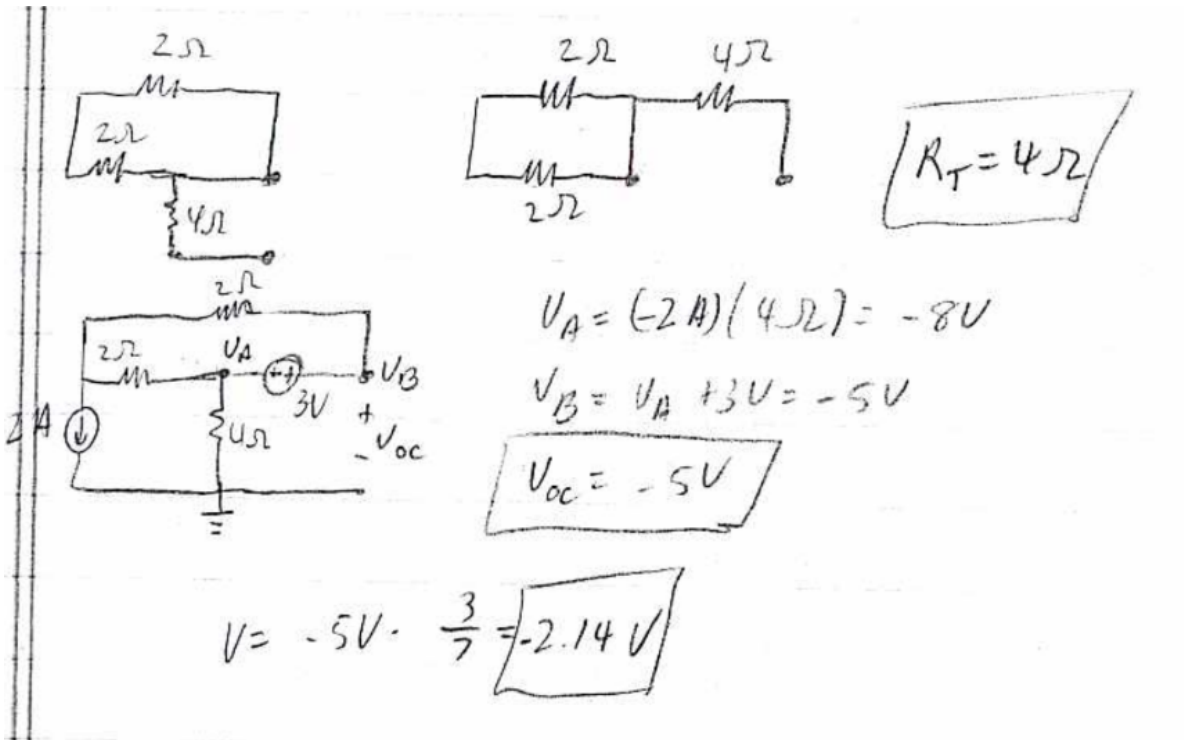 2Ω
2Ω
4Ω
2Ω 4Ω
2Ω
R_T = 4Ω
2Ω
2Ω V_A
- + V_B
3V
2A
4Ω
+
- V_OC
V_A = (-2A)(4Ω) = -8V
V_B = V_A + 3V = -5V
V_OC = -5V
V = -5V · 3/7 = -2.14 V